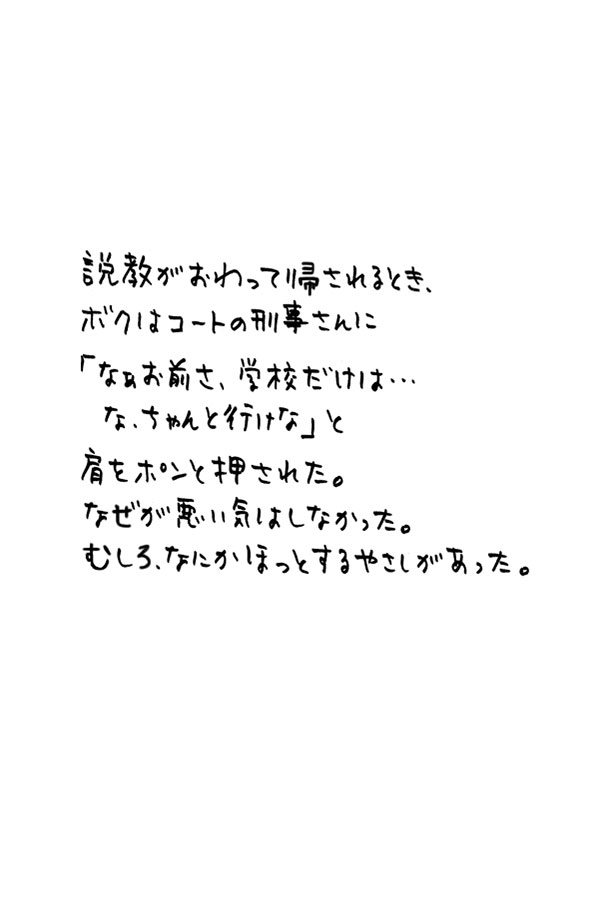 説教がおわって帰されるとき、
ボクはコートの刑事さんに
「なぁお前さ、学校だけは…
な、ちゃんと行けな」と
肩をポンと押された。
なぜが悪い気はしなかった。
むしろ、なにかほっとするやさしがあった。